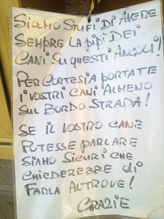 SIAMO STUFI DI AVERE
SEMPRE LA PIPI DEI
CANI SU QUESTI ANGOLI!
PER CORTESIA PORTATE
I VOSTRI CANI ALMENO
SUL BORDO STRADA!
SE IL VOSTRO CANE
POTESSE PARLARE
SIAMO SICURI CHE
CHIEDEREBBE DI
FARLA ALTROVE!
GRAZIE